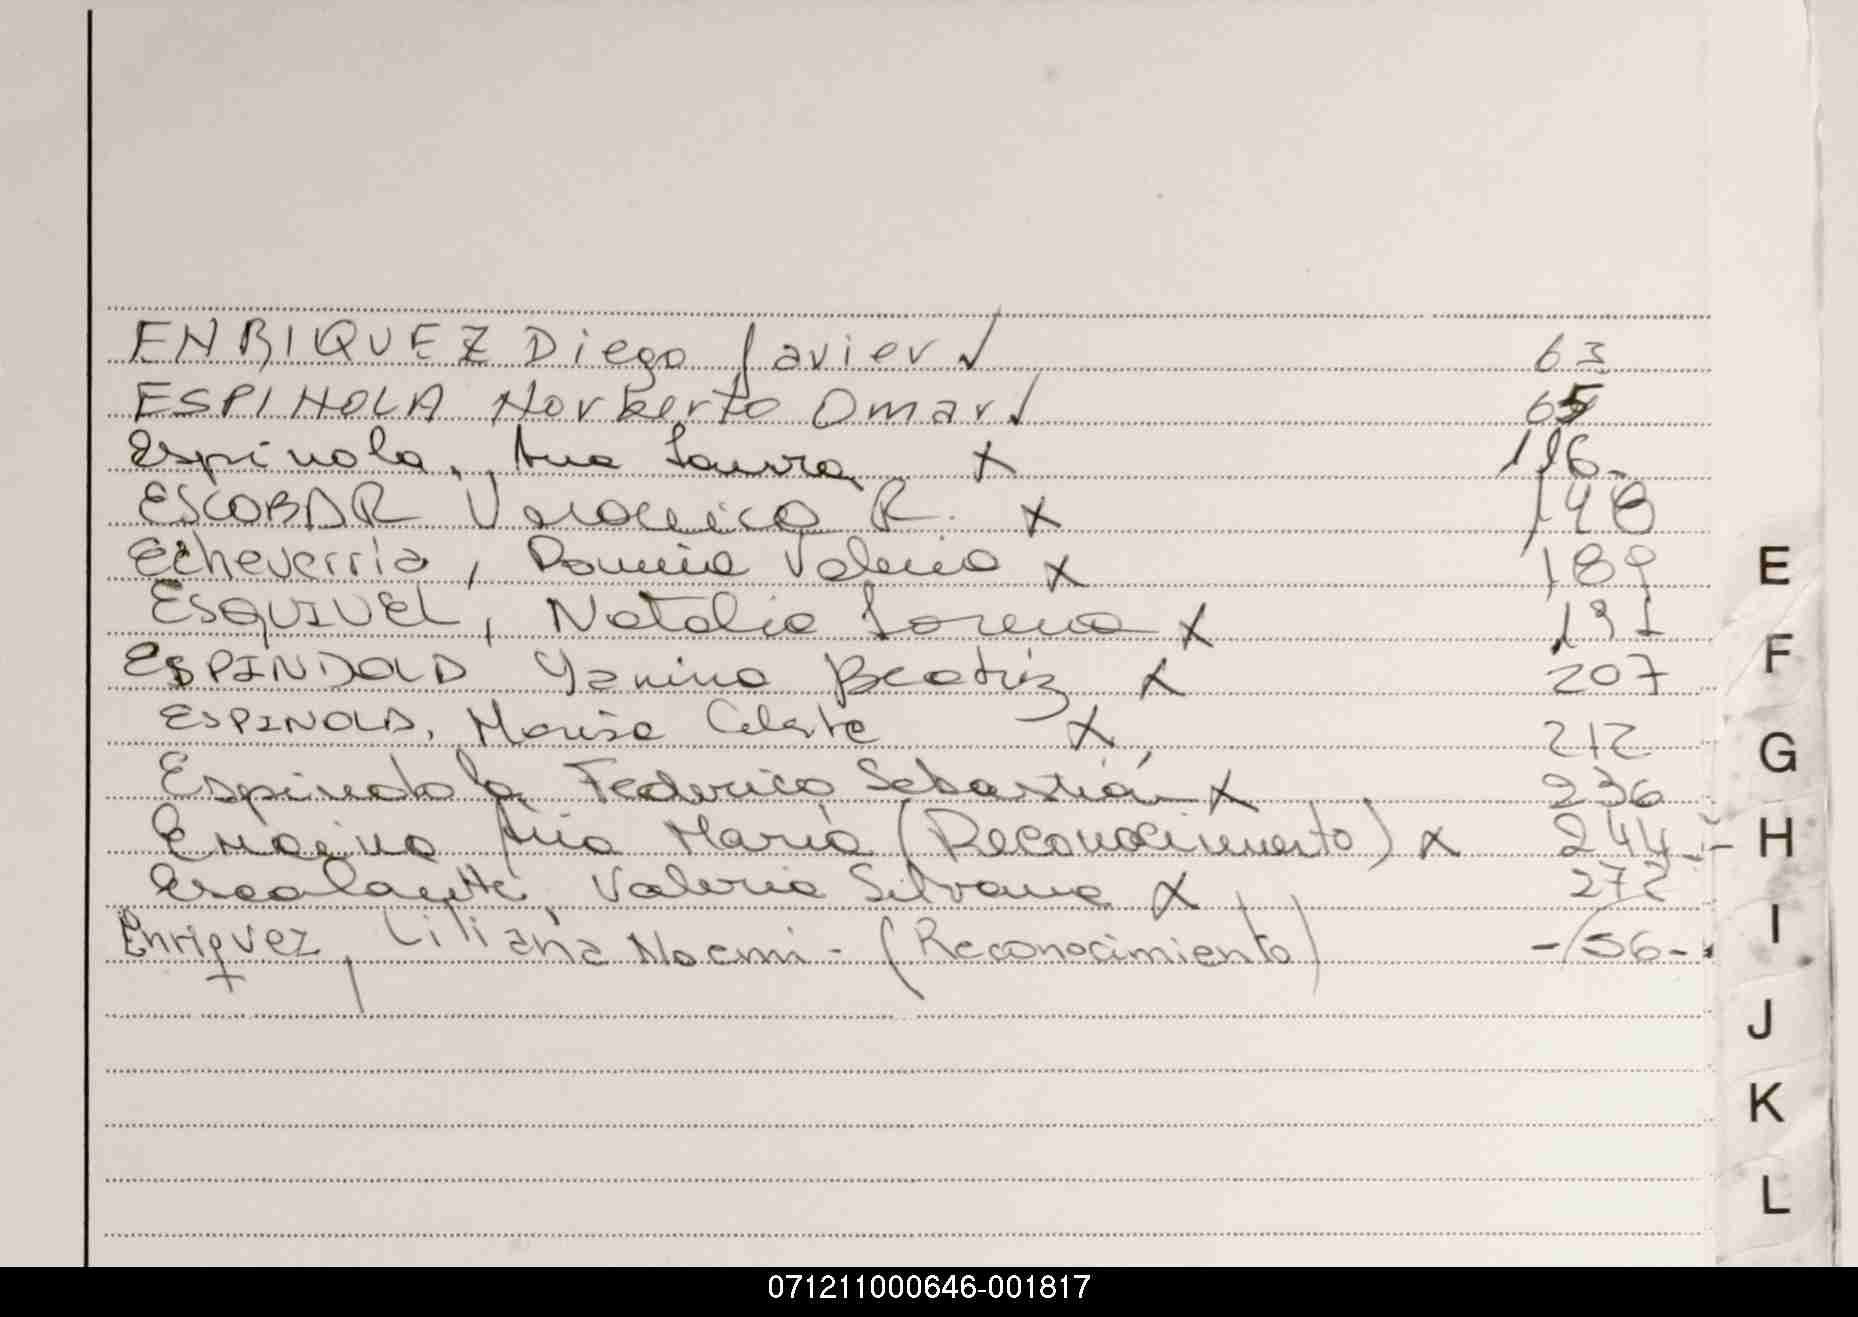 ENRIQUEZ Diego Javier ✓ 63
ESPINOLA Norberto Omar ✓ 65
Espinola, Ana Laura X 116-
ESCOBAR Veronica R. X 148
Echeverria, Romina Valeria X 189
ESQUIVEL, Natalia Lorena X 191
ESPINDOLA Yanina Beatriz X 207
ESPINOLA, Marisa Celeste X 212
Espindola, Federico Sebastián X 236
Encina Ana María (Reconocimiento) X 244-
Escalante, Valeria Silvana X 272
Enriquez, Liliana Noemi - (Reconocimiento) -156-
E
F
G
H
I
J
K
L
071211000646-001817